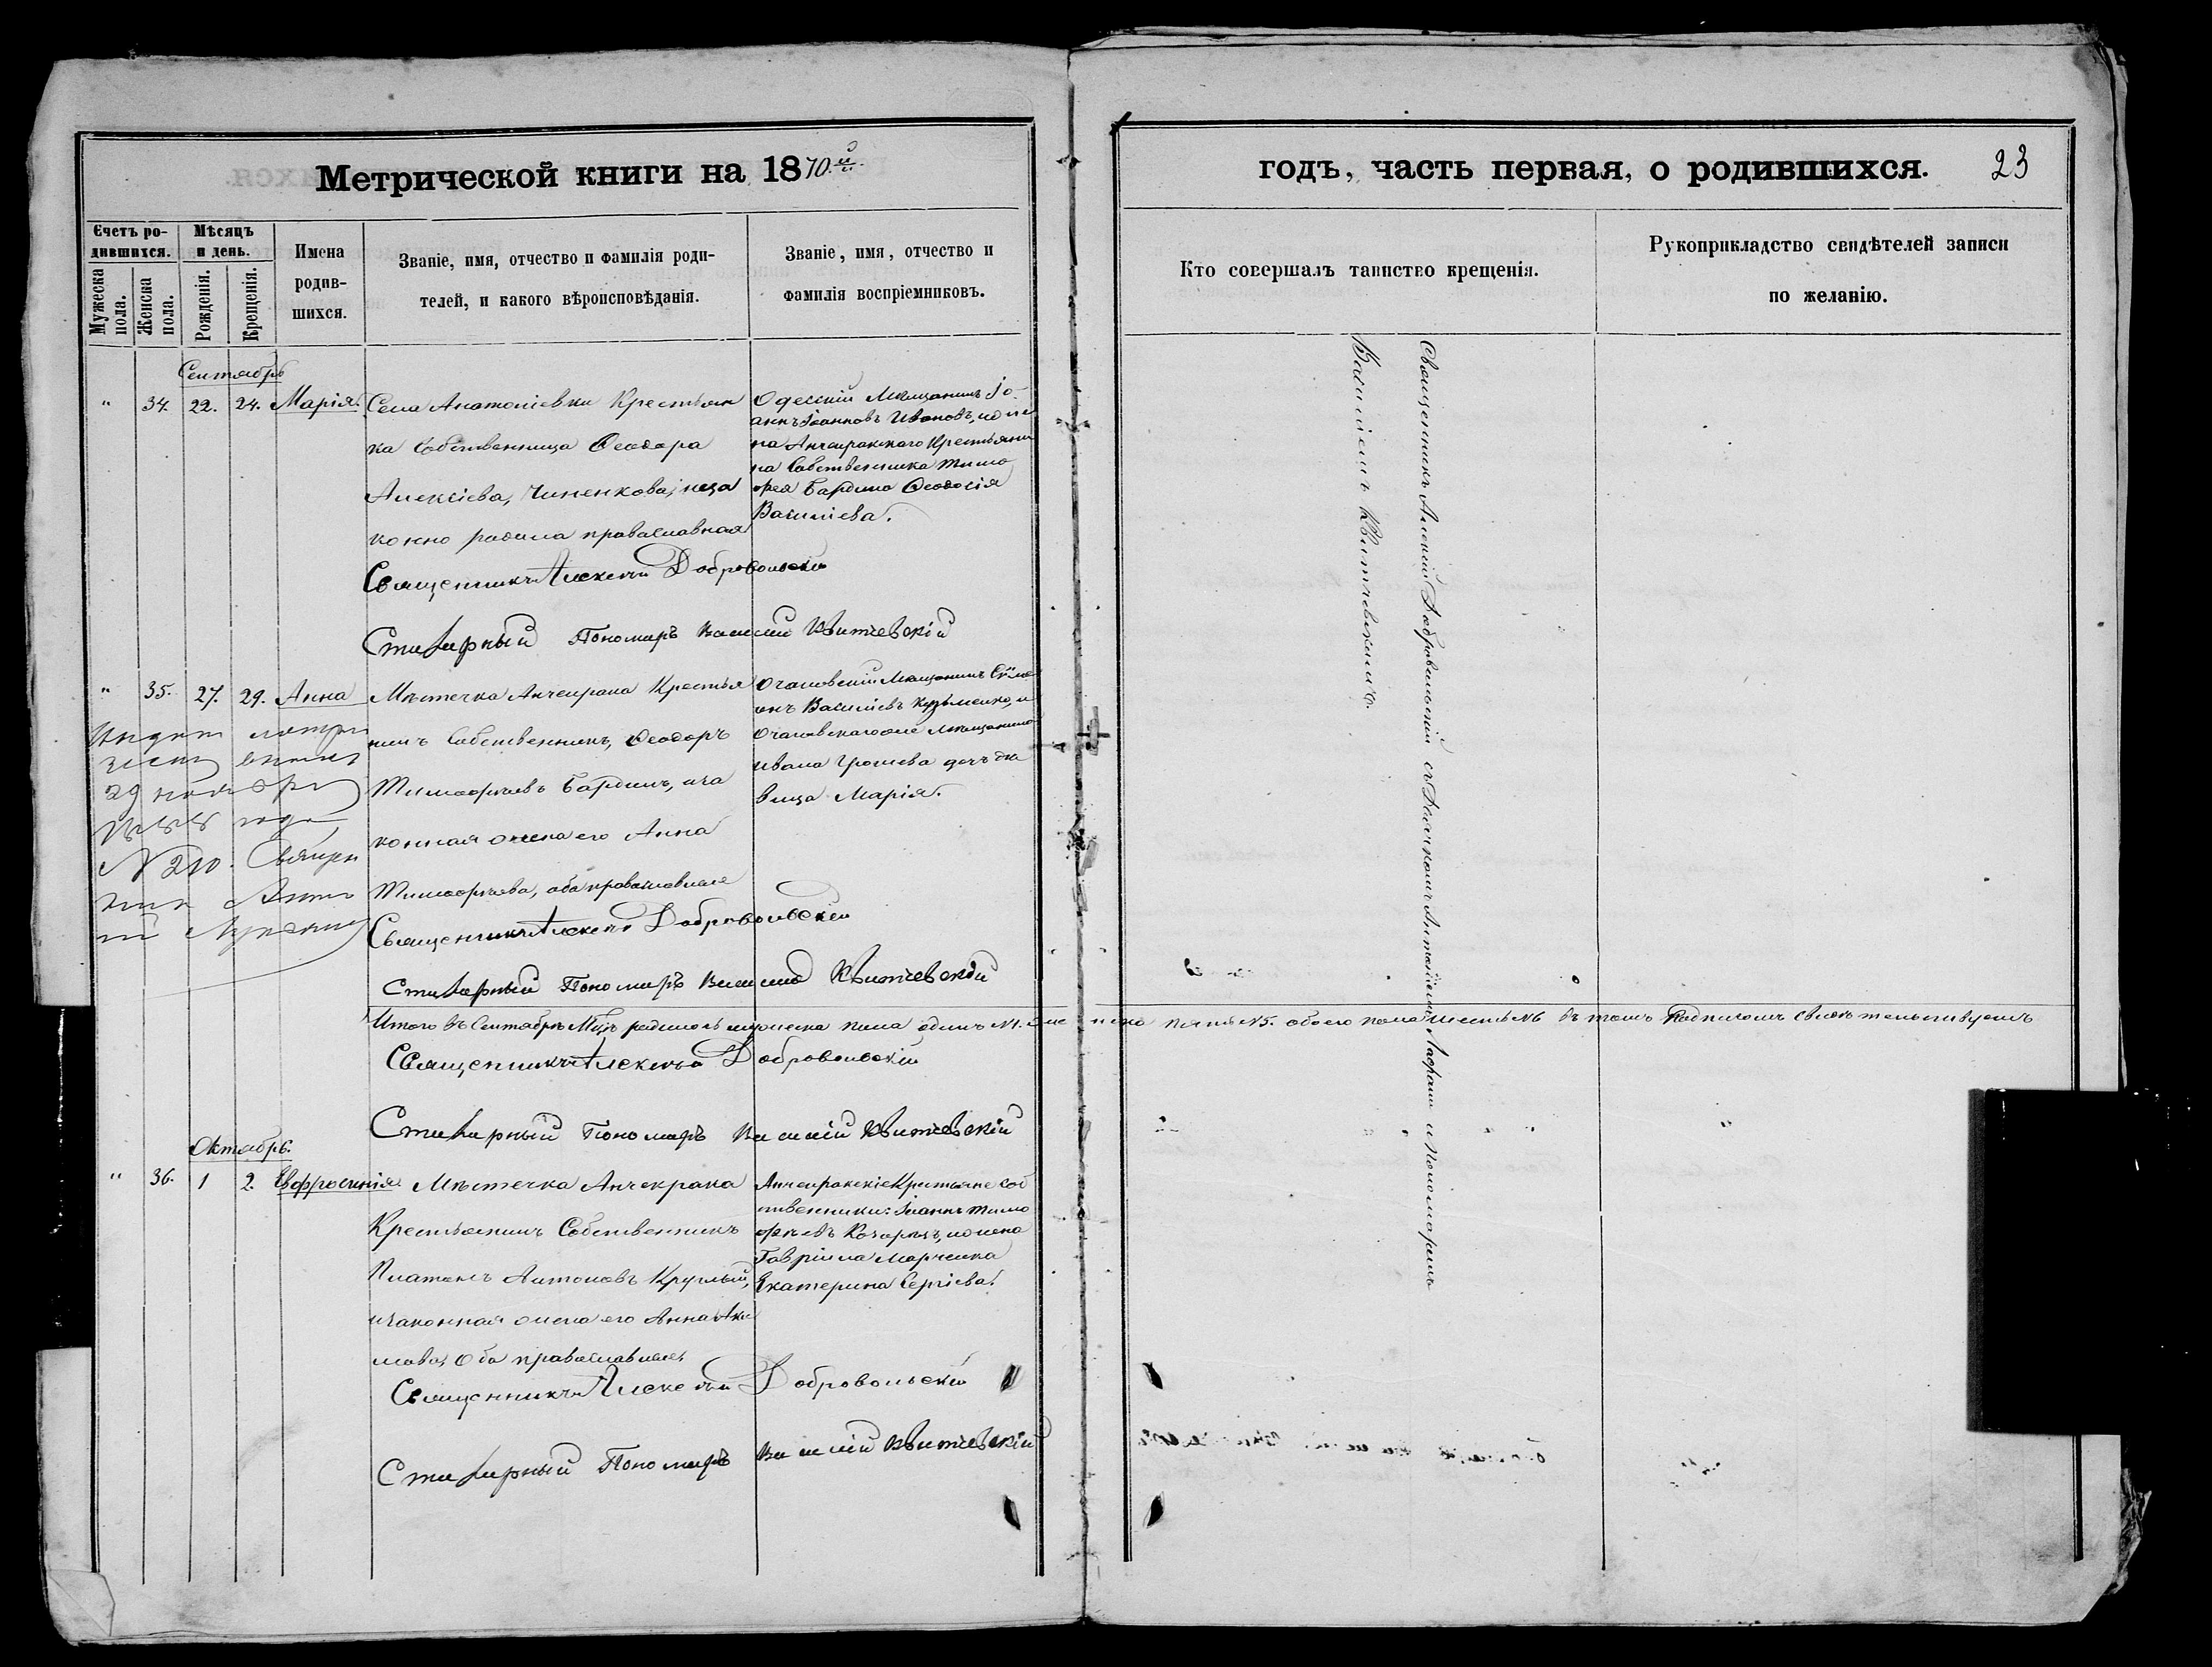 Метрической книги на 1870й
годъ, часть первая, о родившихся.
23
Счетъ ро-
дившихся.
Мужеска пола.
Женска пола.
Мѣсяцъ
и день.
Рожденія.
Крещенія.
Имена
родив-
шихся.
Званіе, имя, отчество и фамилія роди-
телей, и какого вѣроисповѣданія.
Званіе, имя, отчество и
фамилія воспріемниковъ.
Кто совершалъ таинство крещенія.
Рукоприкладство свидѣтелей записи
по желанію.
Сентябрь
" 34. 22. 24. Марія.
Села Анатоліевки Крестьян
ка Собственница Ѳеодора
Алексіева, Чиненкова, неза
конно родила православная
Священникъ Алексѣй Добровольскій
Стихарный Пономаръ Василій Квитчевскій
Одесскій Мѣщанинъ Іо-
аннъ Іоанновъ Ивановъ, и жe
на Анчекракского Крестьяни
на Собственника Тимо
ѳея Бардина Ѳеодосія
Василіева.
" 35. 27. 29. Анна
Мѣстечка Анчекрака Крестья
нинъ Собственникъ, Ѳеодоръ
Тимоѳеевъ Бардинъ, и за
конная жена его Анна
Тимоѳеева, оба православные
Священникъ Алексѣй Добровольскій
Стихарный Пономаръ Василій Квитчевскій
Очаковскій Мѣщанинъ Сѵме
онъ Василіевъ Кузьменко, и
Очаковскаго же Мѣщанина
Ивана Грошева дочь дѣ
вица Марія.
29
года
№ 210. Священ
ник
Итого въ Сентябрѣ М͠цѣ родилось мужеска пола одинъ №1. же нска пять №5. обоего пола шесть №6 въ томъ Подписомъ свидѣтельствуемъ
Священникъ Алексѣй Добровольскій
Стихарный Пономаръ Василій Квитчевскій
Октябрь.
" 36. 1 2. Евфросинія
Мѣстечка Анчекрака
Крестьянинъ Собственникъ
Платонъ Антоновъ Круглый,
и законная жена его Анна Аки
мова, Оба православные,
Священникъ Алексѣй Добровольскій
Стихарный Пономаръ Василій Квитчевскій
Анчекракскіе Крестьяне соб
ственники: Іоаннъ Тимо
ѳеевъ Кочаринъ, и жена
Гавріила Марченка
Екатерина Сергіева.
Священникъ Алексій Добровольскій съ Діакономъ Антоніемъ и Пономаремъ
Василіемъ Квитчевскимъ.